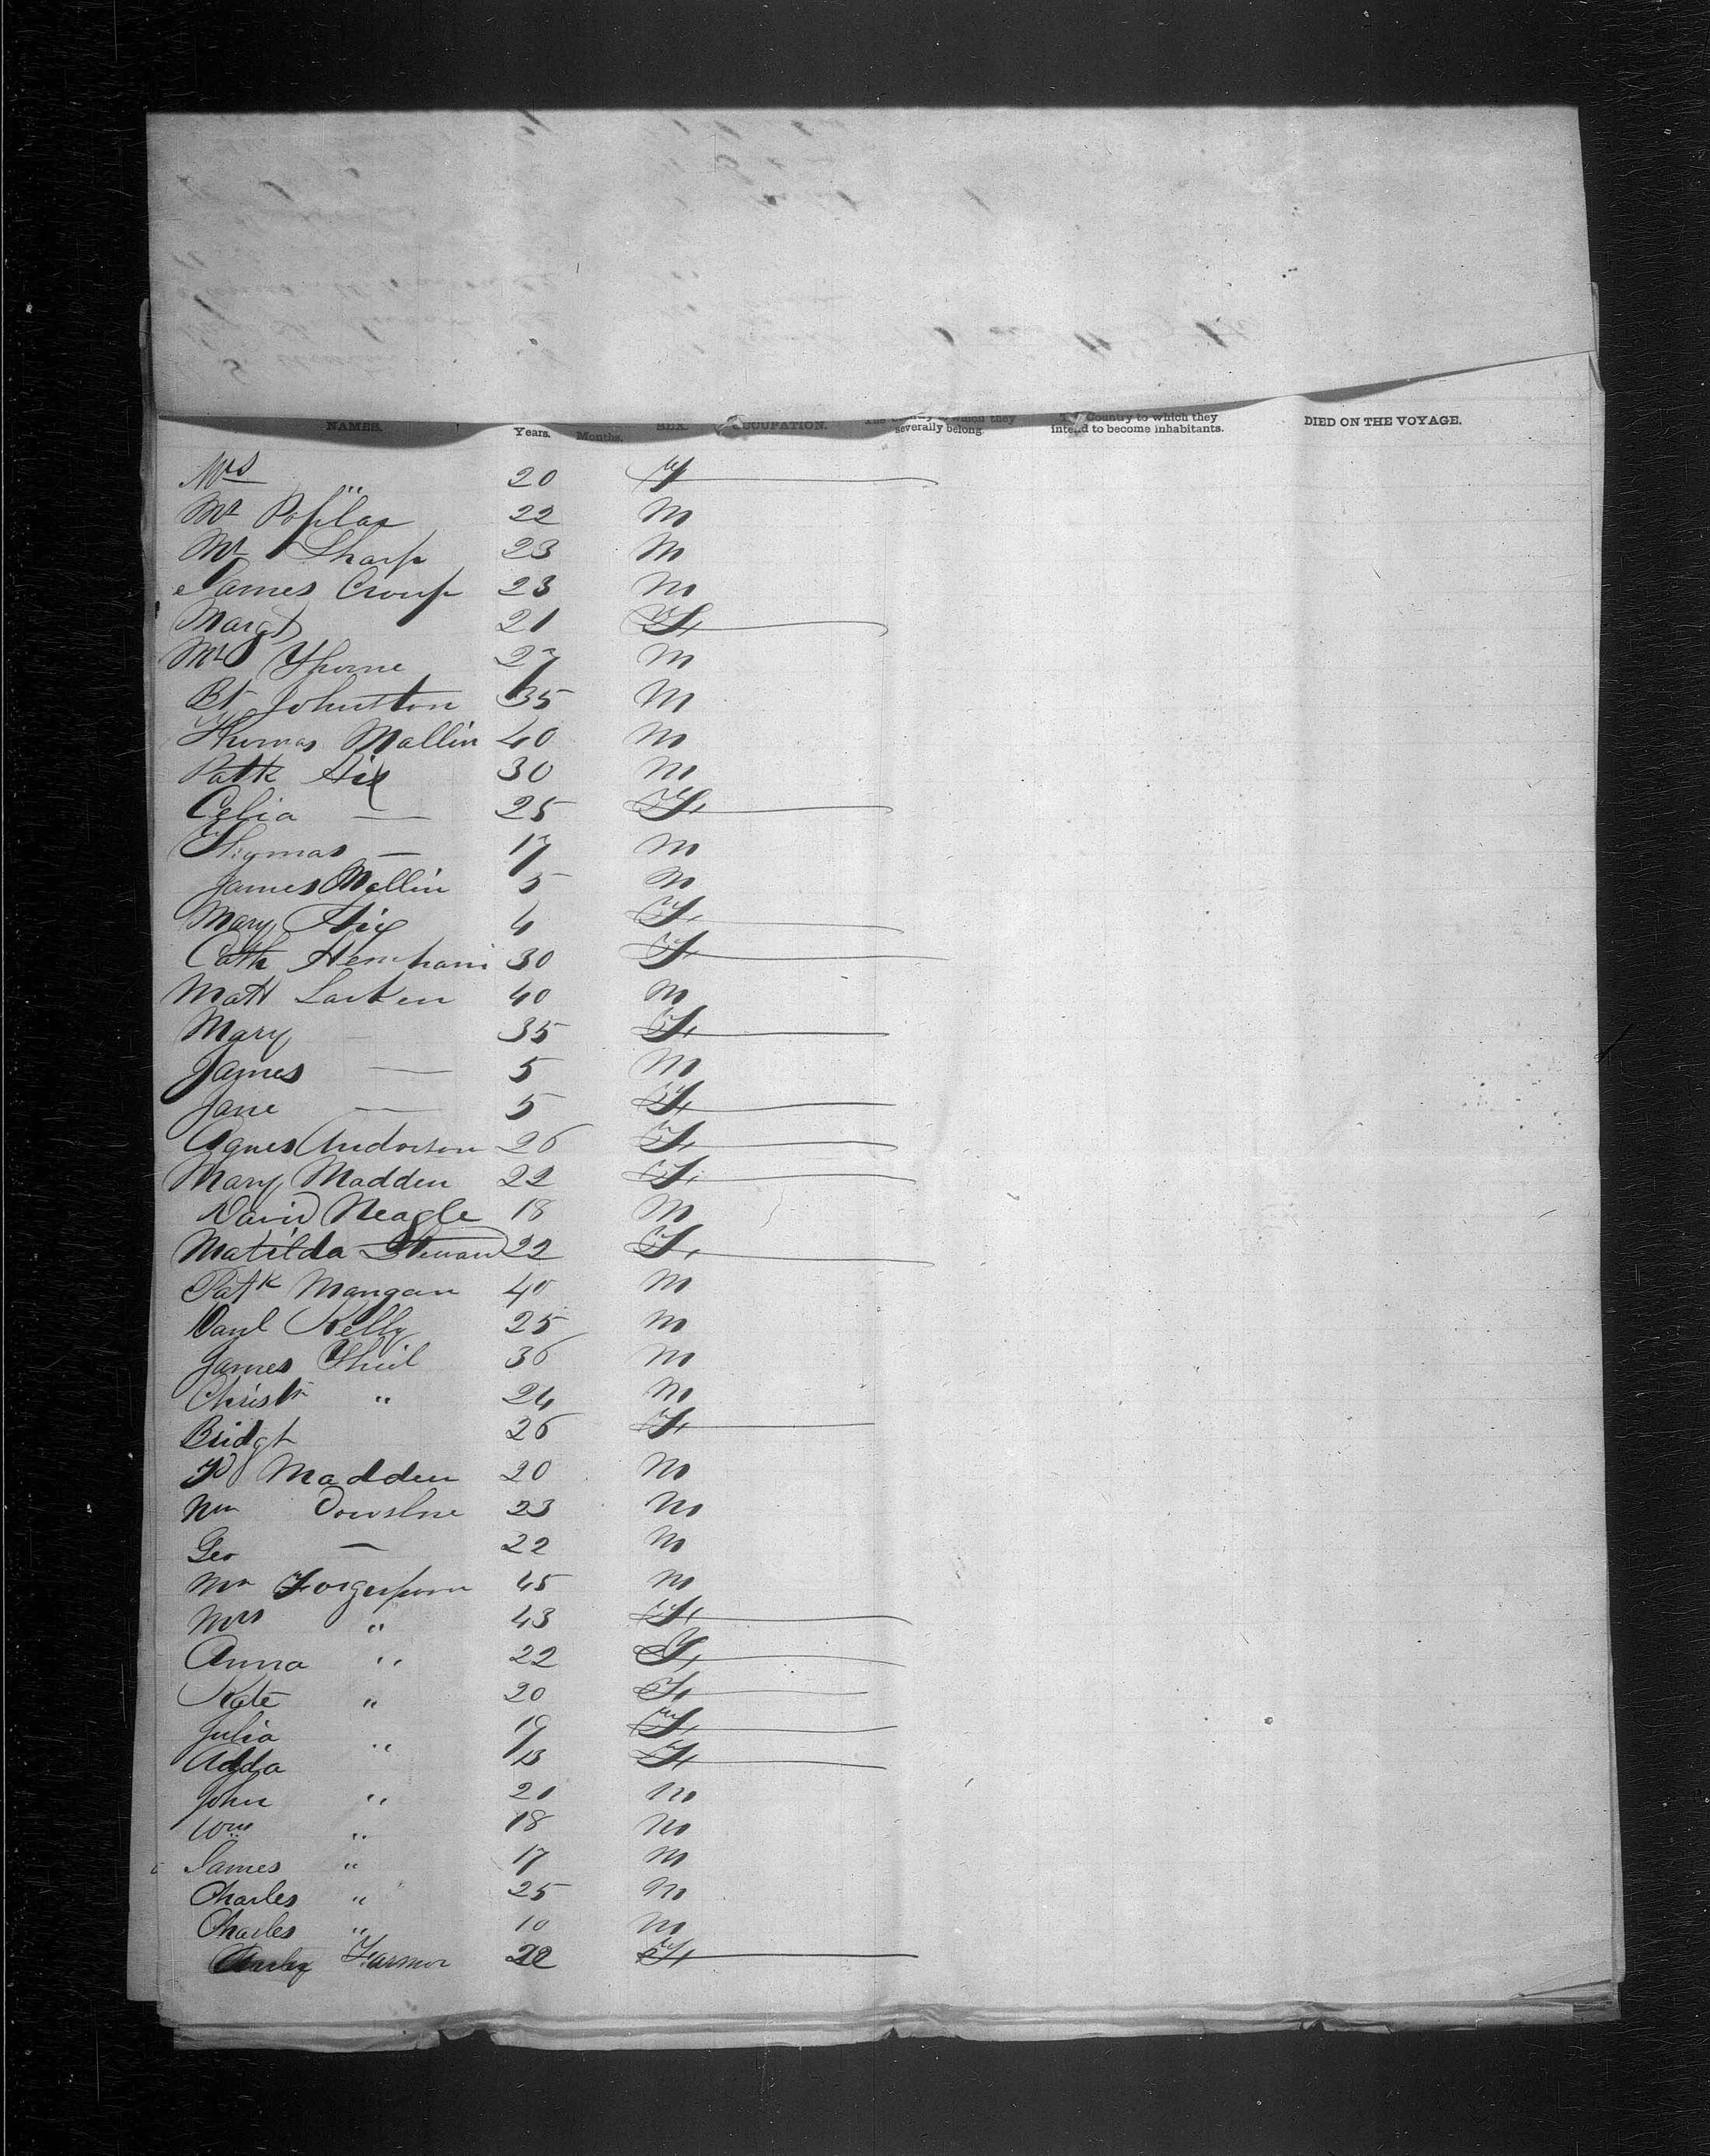 NAMES. Years. Months. SEX. OCCUPATION. The Country to which they severally belong. The Country to which they intend to become inhabitants. DIED ON THE VOYAGE.
Mrs " 20 F
Mr 22 M
Mr Sharp 23 M
James Croup 23 M
Margt 21 F
Mr 27 M
Rt Johnston 35 M
Thomas Mallin 40 M
Patk Hix 30 M
Celia — 25 F
Thomas — 17 M
James Mallin 5 M
Mary Hix 4 F
Cath 30 F
Matt Larken 40 M
Mary — 35 F
James — 5 M
Jane — 5 F
Agnes Anderson 26 F
Mary Madden 22 F
David Neagle 18 M
Matilda Stewart 22 F
Patk Mangan 40 M
Danl Kelly 25 M
James Shiel 36 M
Christr " 24 M
Bridgt 26 F
P Madden 20 M
Wm 23 M
Geo — 22 M
Mr 45 M
Mrs " 43 F
Anna " 22 F
Kate " 20 F
Julia " 19 F
Adda 13 F
John " 21 M
Wm " 18 M
James " 17 M
Charles " 25 M
Charles " 10 M
Farmor 22 F